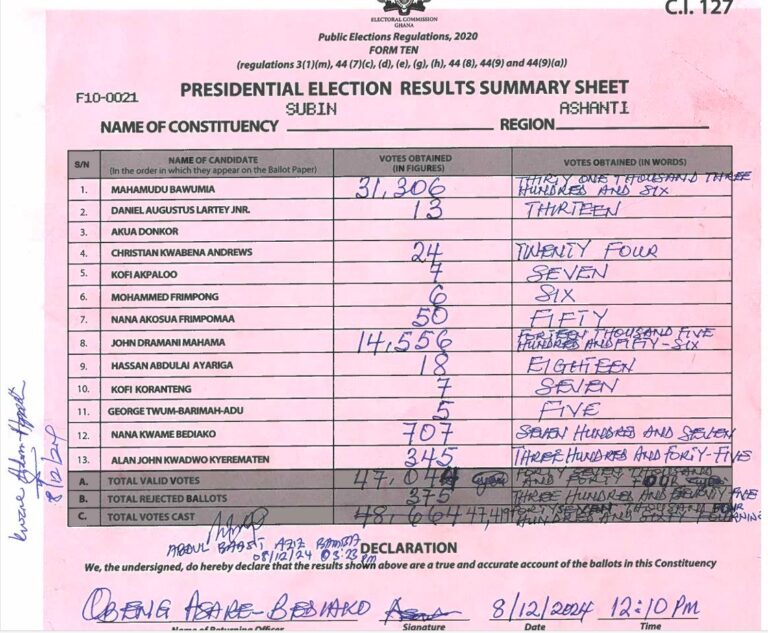 C.I. 127
ELECTORAL COMMISSION
GHANA
Public Elections Regulations, 2020
FORM TEN
(regulations 3(1)(m), 44 (7)(c), (d), (e), (g), (h), 44 (8), 44(9) and 44(9)(a))
PRESIDENTIAL ELECTION RESULTS SUMMARY SHEET
F10-0021
SUBIN ASHANTI
NAME OF CONSTITUENCY REGION
S/N NAME OF CANDIDATE (In the order in which they appear on the Ballot Paper) VOTES OBTAINED (IN FIGURES) VOTES OBTAINED (IN WORDS)
1. MAHAMUDU BAWUMIA 31,306 THIRTY ONE THOUSAND THREE HUNDRED AND SIX
2. DANIEL AUGUSTUS LARTEY JNR. 13 THIRTEEN
3. AKUA DONKOR
4. CHRISTIAN KWABENA ANDREWS 24 TWENTY FOUR
5. KOFI AKPALOO 7 SEVEN
6. MOHAMMED FRIMPONG 6 SIX
7. NANA AKOSUA FRIMPOMAA 50 FIFTY
8. JOHN DRAMANI MAHAMA 14,556 FORTEEN THOUSAND FIVE HUNDRED AND FIFTY-SIX
9. HASSAN ABDULAI AYARIGA 18 EIGHTEEN
10. KOFI KORANTENG 7 SEVEN
11. GEORGE TWUM-BARIMAH-ADU 5 FIVE
12. NANA KWAME BEDIAKO 707 SEVEN HUNDRED AND SEVEN
13. ALAN JOHN KWADWO KYEREMATEN 345 THREE HUNDRED AND FORTY-FIVE
A. TOTAL VALID VOTES 47,044 FORTY SEVEN THOUSAND AND FORTY FOUR
B. TOTAL REJECTED BALLOTS 375 THREE HUNDRED AND SEVENTY FIVE
C. TOTAL VOTES CAST FORTY SEVEN THOUSAND FOUR HUNDRED AND
8/12/24
ABDUL AZIZ
08/12/24 03:23 PM
DECLARATION
We, the undersigned, do hereby declare that the results shown above are a true and accurate account of the ballots in this Constituency
OBENG ASARE-BEDIAKO 8/12/2024 12:10 PM
Name of Returning Officer Signature Date Time